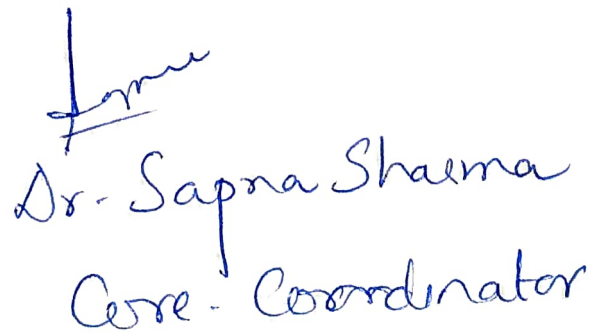 Dr. Sapna Sharma
Core. Coordinator